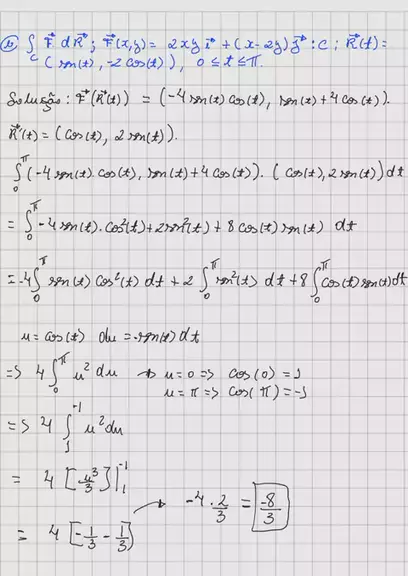 b) ∫_C F⃗ dR⃗ ; F⃗(x,y) = 2xy i⃗ + (x-2y) j⃗ : C ; R⃗(t) =
(sen(t), -2cos(t)), 0 ≤ t ≤ π.
Solução: F⃗(R⃗(t)) = (-4sen(t)cos(t), sen(t)+4cos(t)).
R⃗'(t) = (cos(t), 2sen(t)).
∫_0^π (-4sen(t).cos(t), sen(t)+4cos(t)).(cos(t), 2sen(t)) dt
= ∫_0^π -4sen(t).cos²(t)+2sen²(t)+8cos(t)sen(t) dt
= -4∫_0^π sen(t)cos²(t) dt + 2∫_0^π sen²(t) dt + 8∫_0^π cos(t)sen(t)dt
u = cos(t) du = -sen(t)dt
=> 4∫_0^π u² du → u = 0 => cos(0) = 1
u = π => cos(π) = -1
=> 4∫_1^-1 u² du
= 4[u³/3]|_1^-1
= 4[-1/3 - 1/3] → -4.2/3 = -8/3